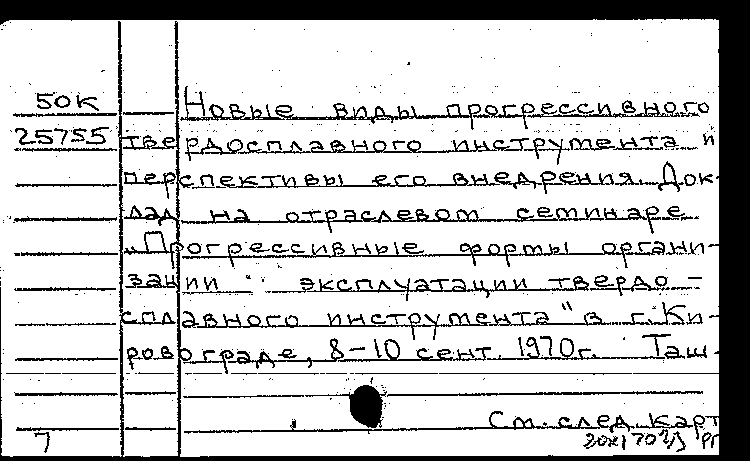 50К Новые виды прогрессивного
25755 твердосплавного инструмента и
перспективы его внедрения. Док-
лад на отраслевом семинаре
„Прогрессивные формы органи-
зации эксплуатации твердо-
сплавного инструмента" в г. Ки-
ровограде, 8-10 сент. 1970г. Таш-
См. след. карт
7